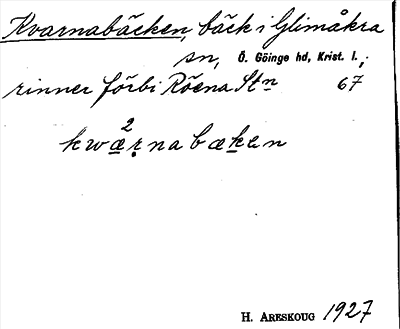 Kvarnabäcken, bäck i Glimåkra
sn, Ö. Göinge hd, Krist. l.,
rinner förbi Röena Stn 67
kwæ²rnabækən
H. ARESKOUG 1927